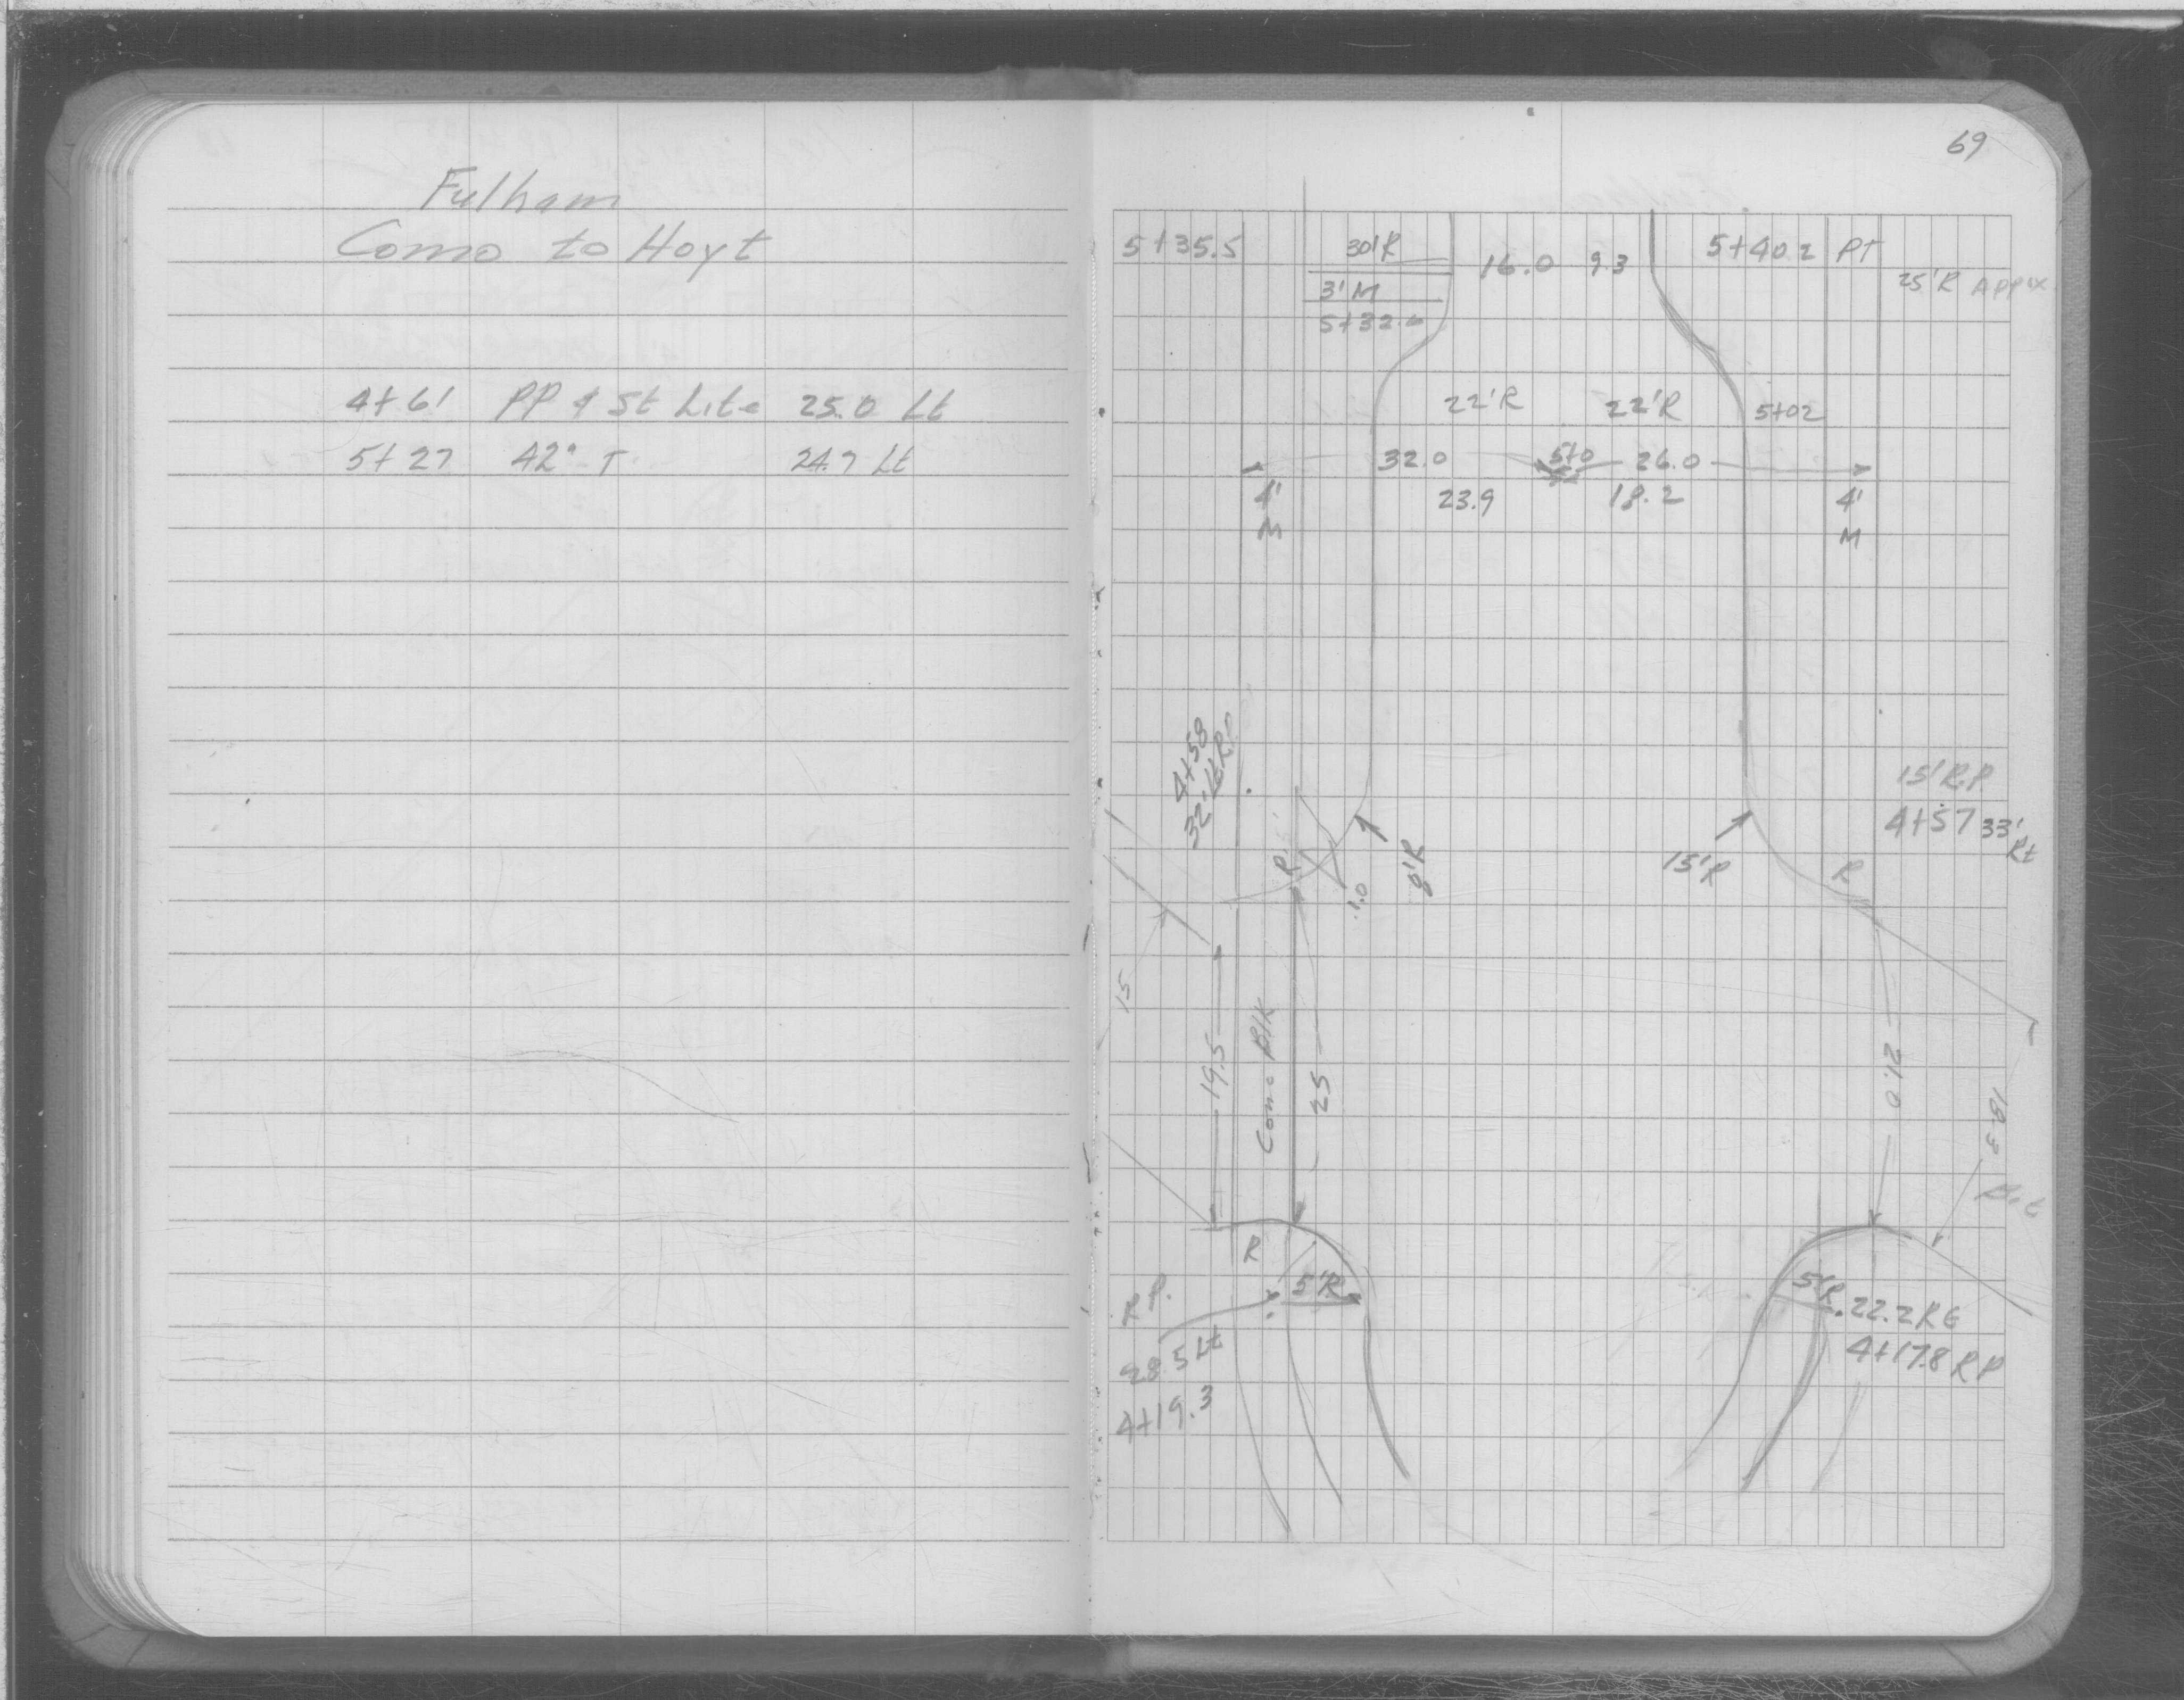 Fulham
Como to Hoyt
4+61 PP & St Lite 25.0 Lt
5+27 42" T 24.7 Lt
69
5+35.5 30'R 16.0 9.3 5+40.2 PT
3'M 25'R Appox
5+32.0
22'R 22'R 5+02
32.0 5+0 26.0
4' 23.9 18.2 4'
M M
4+58
15'R.P.
4+57 33'
Rt
15'R R
R 8'R
1.0
15
19.5
Conc Blk
25
21.0
18.3
R
R.P. 5'R 5'R 22.2 Rt
28.5 Lt 4+17.8 RP
4+19.3